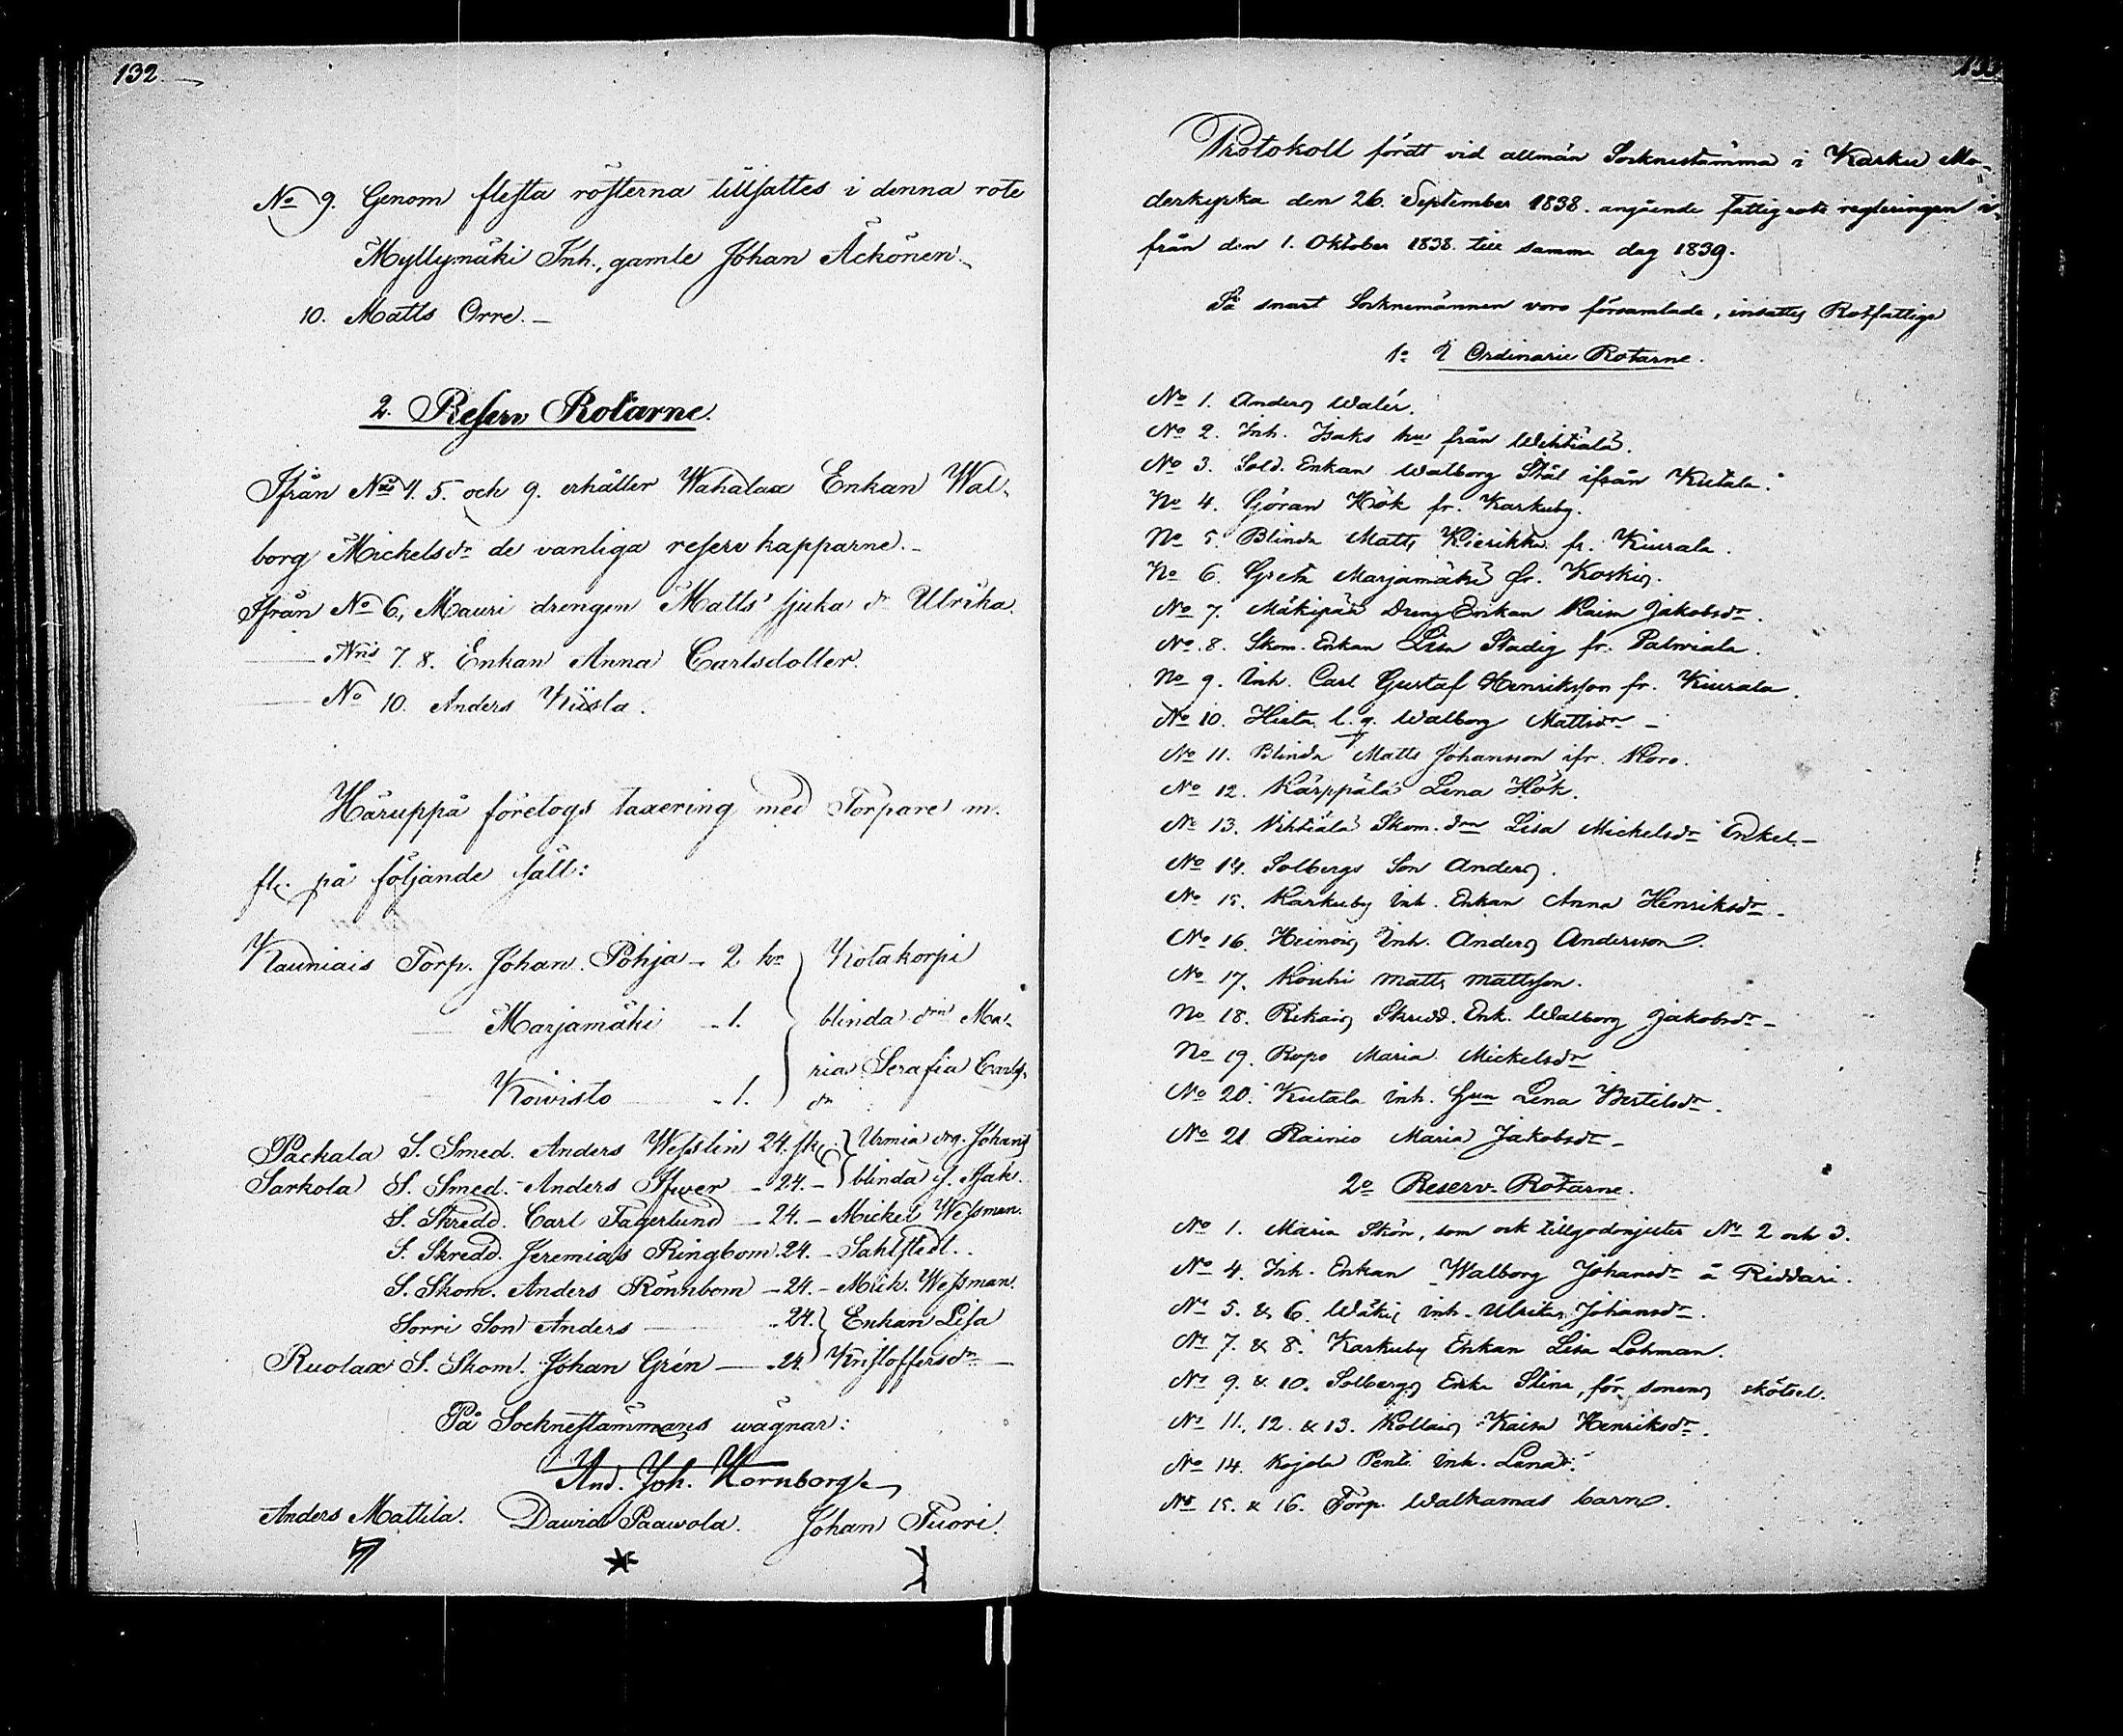 132.
No 9. Genom flesta rösterna tillsattes i denna rote
Myllymäki Inh., gamle Johan Äckönen.
10. Matts Orre.
2. Reserv Rotarne.
Ifrån Nris 4. 5. och 9. erhåller Wahalax Enkan Wal-
borg Mickelsdr de vanliga reserv kapparne.
Ifrån No 6, Mauri drengen Matts' sjuka dr Ulrika.
Nris 7. 8. Enkan Anna Carlsdotter.
No 10. Anders Kiista.
Häruppå företogs taxering med Torpare m.
fl. på följande sätt:
Kauniais Torp. Johan Pohja - 2 kr Kotakorpi
Marjamäki - 1. blinda drn Ma-
Koivisto - 1. ria Serafia Carls-
dr
Packala S. Smed. Anders Wesslin 24. sk. Urmia drg. Johans
Sarkola S. Smed. Anders Ifwer - 24. - blinda
S. Skredd. Carl Fagerlund - 24. - Mickel Wessman.
S. Skredd. Jeremias Ringbom. 24. - Sahlstedt.
S. Skom. Anders Rönnbom - 24. - Mich. Wessman.
Sorri Son Anders - 24. Enkan Lisa
Ruolax S. Skom. Johan Grén - 24. Kristoffersdr
På Socknestämmans wägnar:
And. Joh. Hornborg
Anders Mattila. David Paawola. Johan Tuori.
Protokoll fördt vid allmän Socknestämma i Karku Mo-
derkyrka den 26. September 1838. angående fattigrote regleringen i-
från den 1. Oktober 1838. till samma dag 1839.
Så snart Socknemännen voro församlade, insattes Rotfattige
1o I Ordinarie Rotarne.
No 1. Anders Walér.
No 2. Inh. Isaks hu från Wihtiälä.
No 3. Sold. Enkan Walborg Stål ifrån Kutala.
No 4. Göran Hök fr. Karkuby.
No 5. Blinda Matts Kierikka fr. Kiurala.
No 6. Greta Marjamäki fr. Koskis.
No 7. Mäkipää Dreng Enkan Kaisa Jakobsdr.
No 8. Skom. Enkan Lisa Stadig fr. Palviala.
No 9. Inh. Carl Gustaf Henriksson fr. Kiurala.
No 10. Hieta l. q. Walborg Mattsdr
No 11. Blinda Matts Johansson ifr. Koro.
No 12. Kärppälä Lena Hök.
No 13. Vihtiälä Skom. drn Lisa Mickelsdr Enkel.
No 14. Solbergs Son Anders.
No 15. Karkuby Inh. Enkan Anna Henriksdr
No 16. Heinois Inh. Anders Andersson.
No 17. Kouhi Matts Mattsson.
No 18. Rikais Skredd. Enk. Walborg Jakobsdr
No 19. Ropo Maria Mickelsdr
No 20. Kutala Inh. Lena Bertilsdr.
No 21 Rainio Maria Jakobsdr
2o Reserv-Rotarne.
No 1. Maria Skön, som ock tillgodonjuter Nr 2 och 3.
No 4. Inh. Enkan Walborg Johansdr å Riddari.
Nr 5. & 6. Inh. Ulrika Johansdr.
Nr 7. & 8. Karkuby Enkan Lisa Lohman.
Nr 9. & 10. Solbergs Enka Stina, för sonens skötsel.
Nr 11., 12. & 13. Kollais Kaisa Henriksdr.
No 14. Kojola Penti Inh. Lena.
Nr 15. & 16. Torp. Walkamas barn.